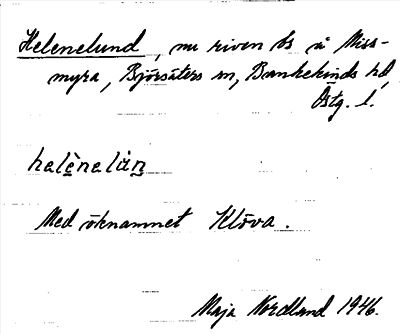 Helenelund, nu riven bs å Miss-
myra, Björsäters sn, Bankekinds hd,
Östg. l.
helènelùn
Med öknamnet Klöva.
Maja Nordlund 1946.